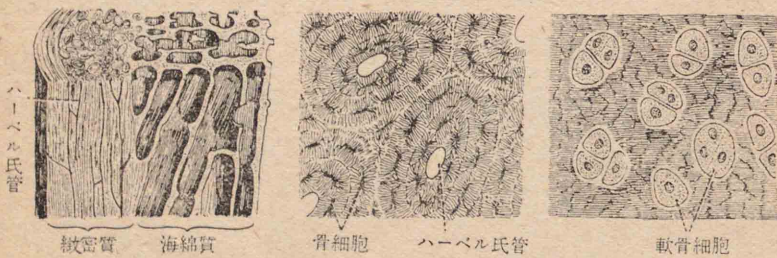 ハーベル氏管
緻密質
海綿質
骨細胞
ハーベル氏管
軟骨細胞